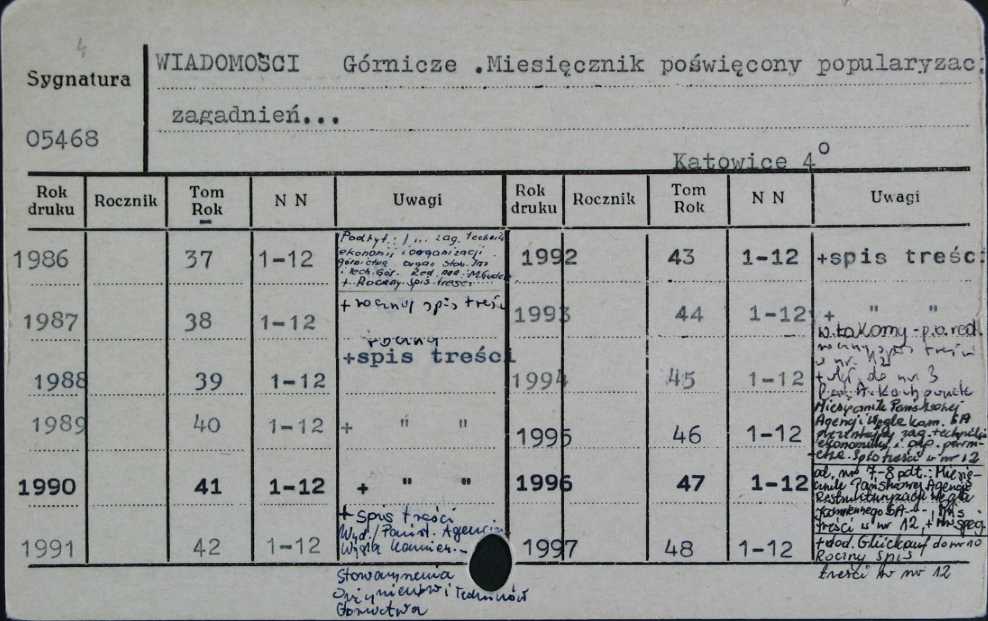 4
Sygnatura
05468
WIADOMOŚCI Górnicze .Miesięcznik poświęcony popularyzac
zagadnień...
Katowice 4°
Rok druku Rocznik Tom Rok N N Uwagi Rok druku Rocznik Tom Rok N N Uwagi
1986 37 1-12
Podtyt.: zag. techniki
ekonomii i organizacji
+ Roczny spis treści
1987 38 1-12 + roczny spis treści
roczny
+spis treści
1988 39 1-12
1989 40 1-12 + " "
1990 41 1-12 + " "
+ spis treści
1991 42 1-12
Wyd. Państ. Agencja
Węgla Kamien.
Stowarzyszenia
Inżynierów i Techników
Górnictwa
1992 43 1-12 +spis treści
1993 44 1-12 + " "
W. Łakomy - p.o. red.
roczny spis treści
w nr 12
1994 45 1-12
do nr 3
1995 46 1-12
Miesięcznik Państwowej
Agencji Węgla Kam. SA
zag. techniki
Spis treści w nr 12
1996 47 1-12
od nru 7-8 pdt.: Miesię-
cznik Państwowej Agencji
Restrukturyzacji Węgla
Kamiennego SA
treści w nr 12, +
1997 48 1-12
+ dod. Glückauf do nr 10
Roczny spis
treści w nr 12